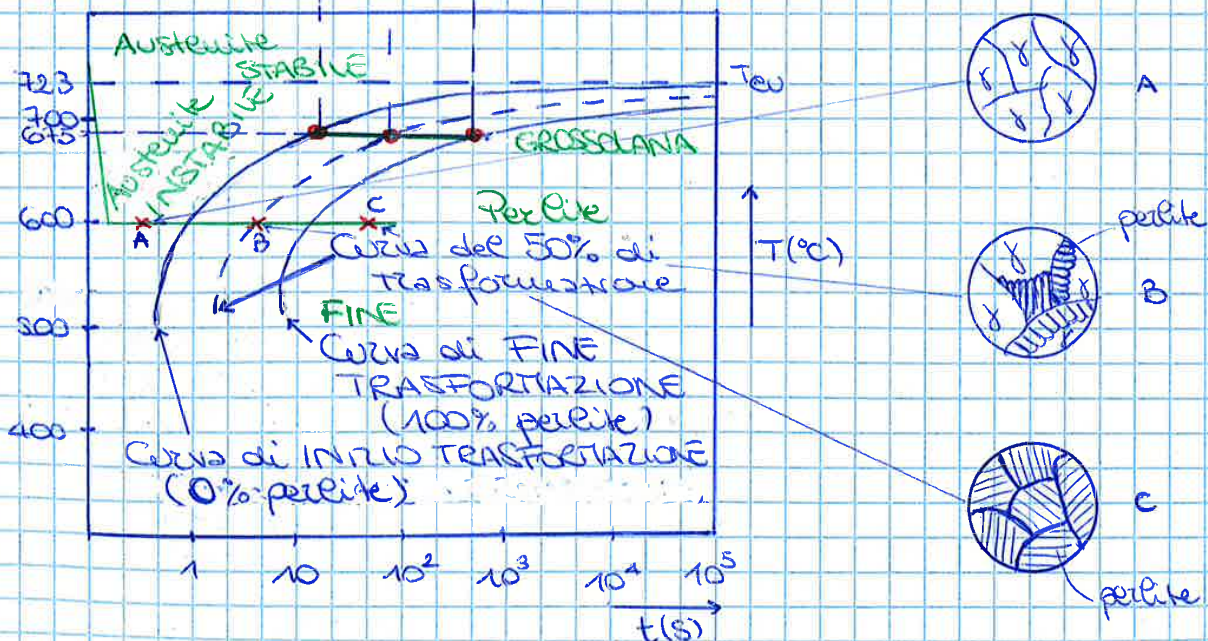 Austenite
STABILE
723
Teu
700
675
Austenite
INSTABILE
GROSSOLANA
600
A
B
C
Perlite
Curva del 50% di
trasformazione
FINE
300
Curva di FINE
TRASFORMAZIONE
(100% perlite)
400
Curva di INIZIO TRASFORMAZIONE
(0% perlite)
1
10
10²
10³
10⁴
10⁵
t(s)
T(°C)
γ γ
γ γ
γ γ
A
perlite
γ
γ
γ
B
C
perlite